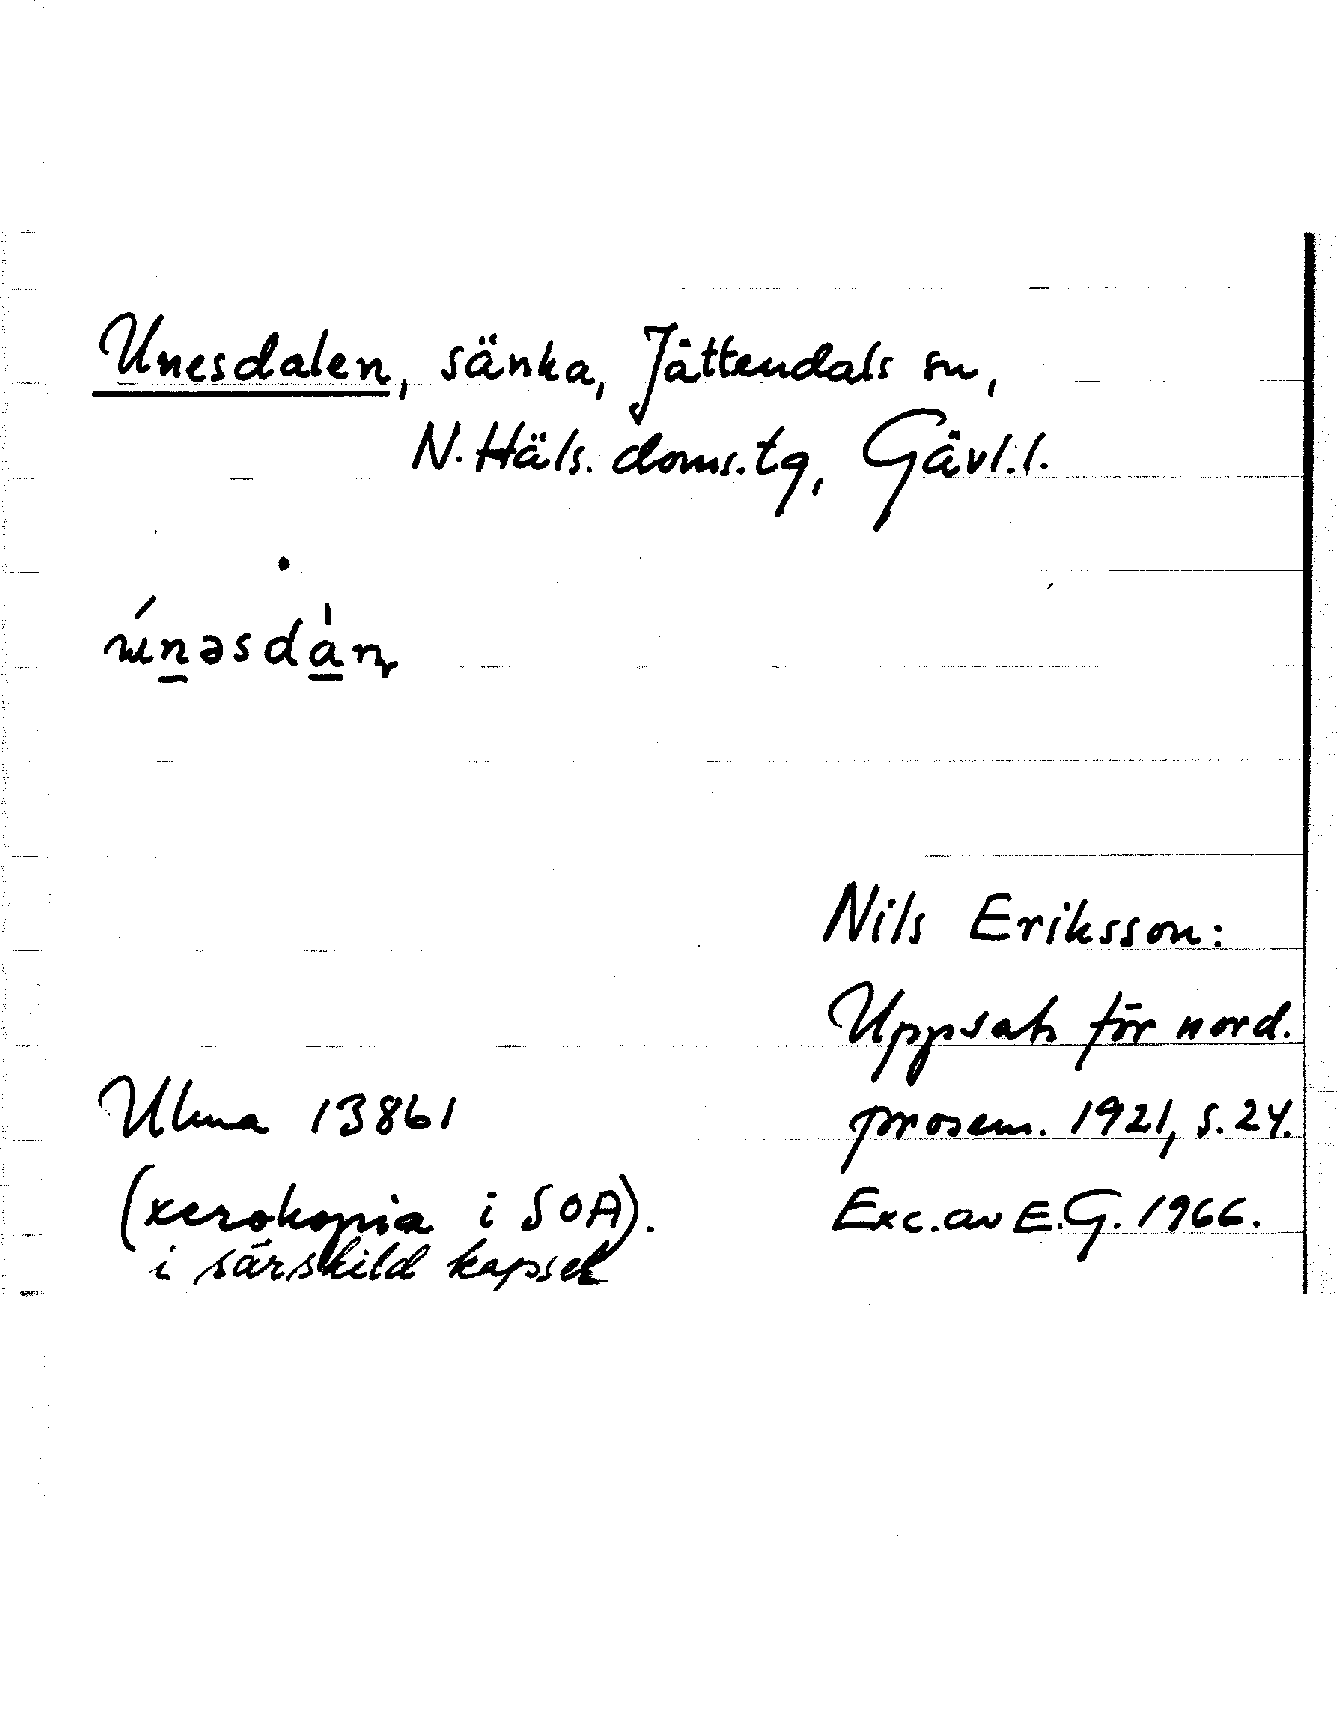 Unesdalen, sänka, Jättendals sn,
N. Häls. doms. tg, Gävl. l.
únəsdàn
Nils Eriksson:
Uppsats för nord.
prosem. 1921, s. 24.
Exc. av E.G. 1966.
Ulma 13861
(xerokopia i SOA).
i särskild kapsel